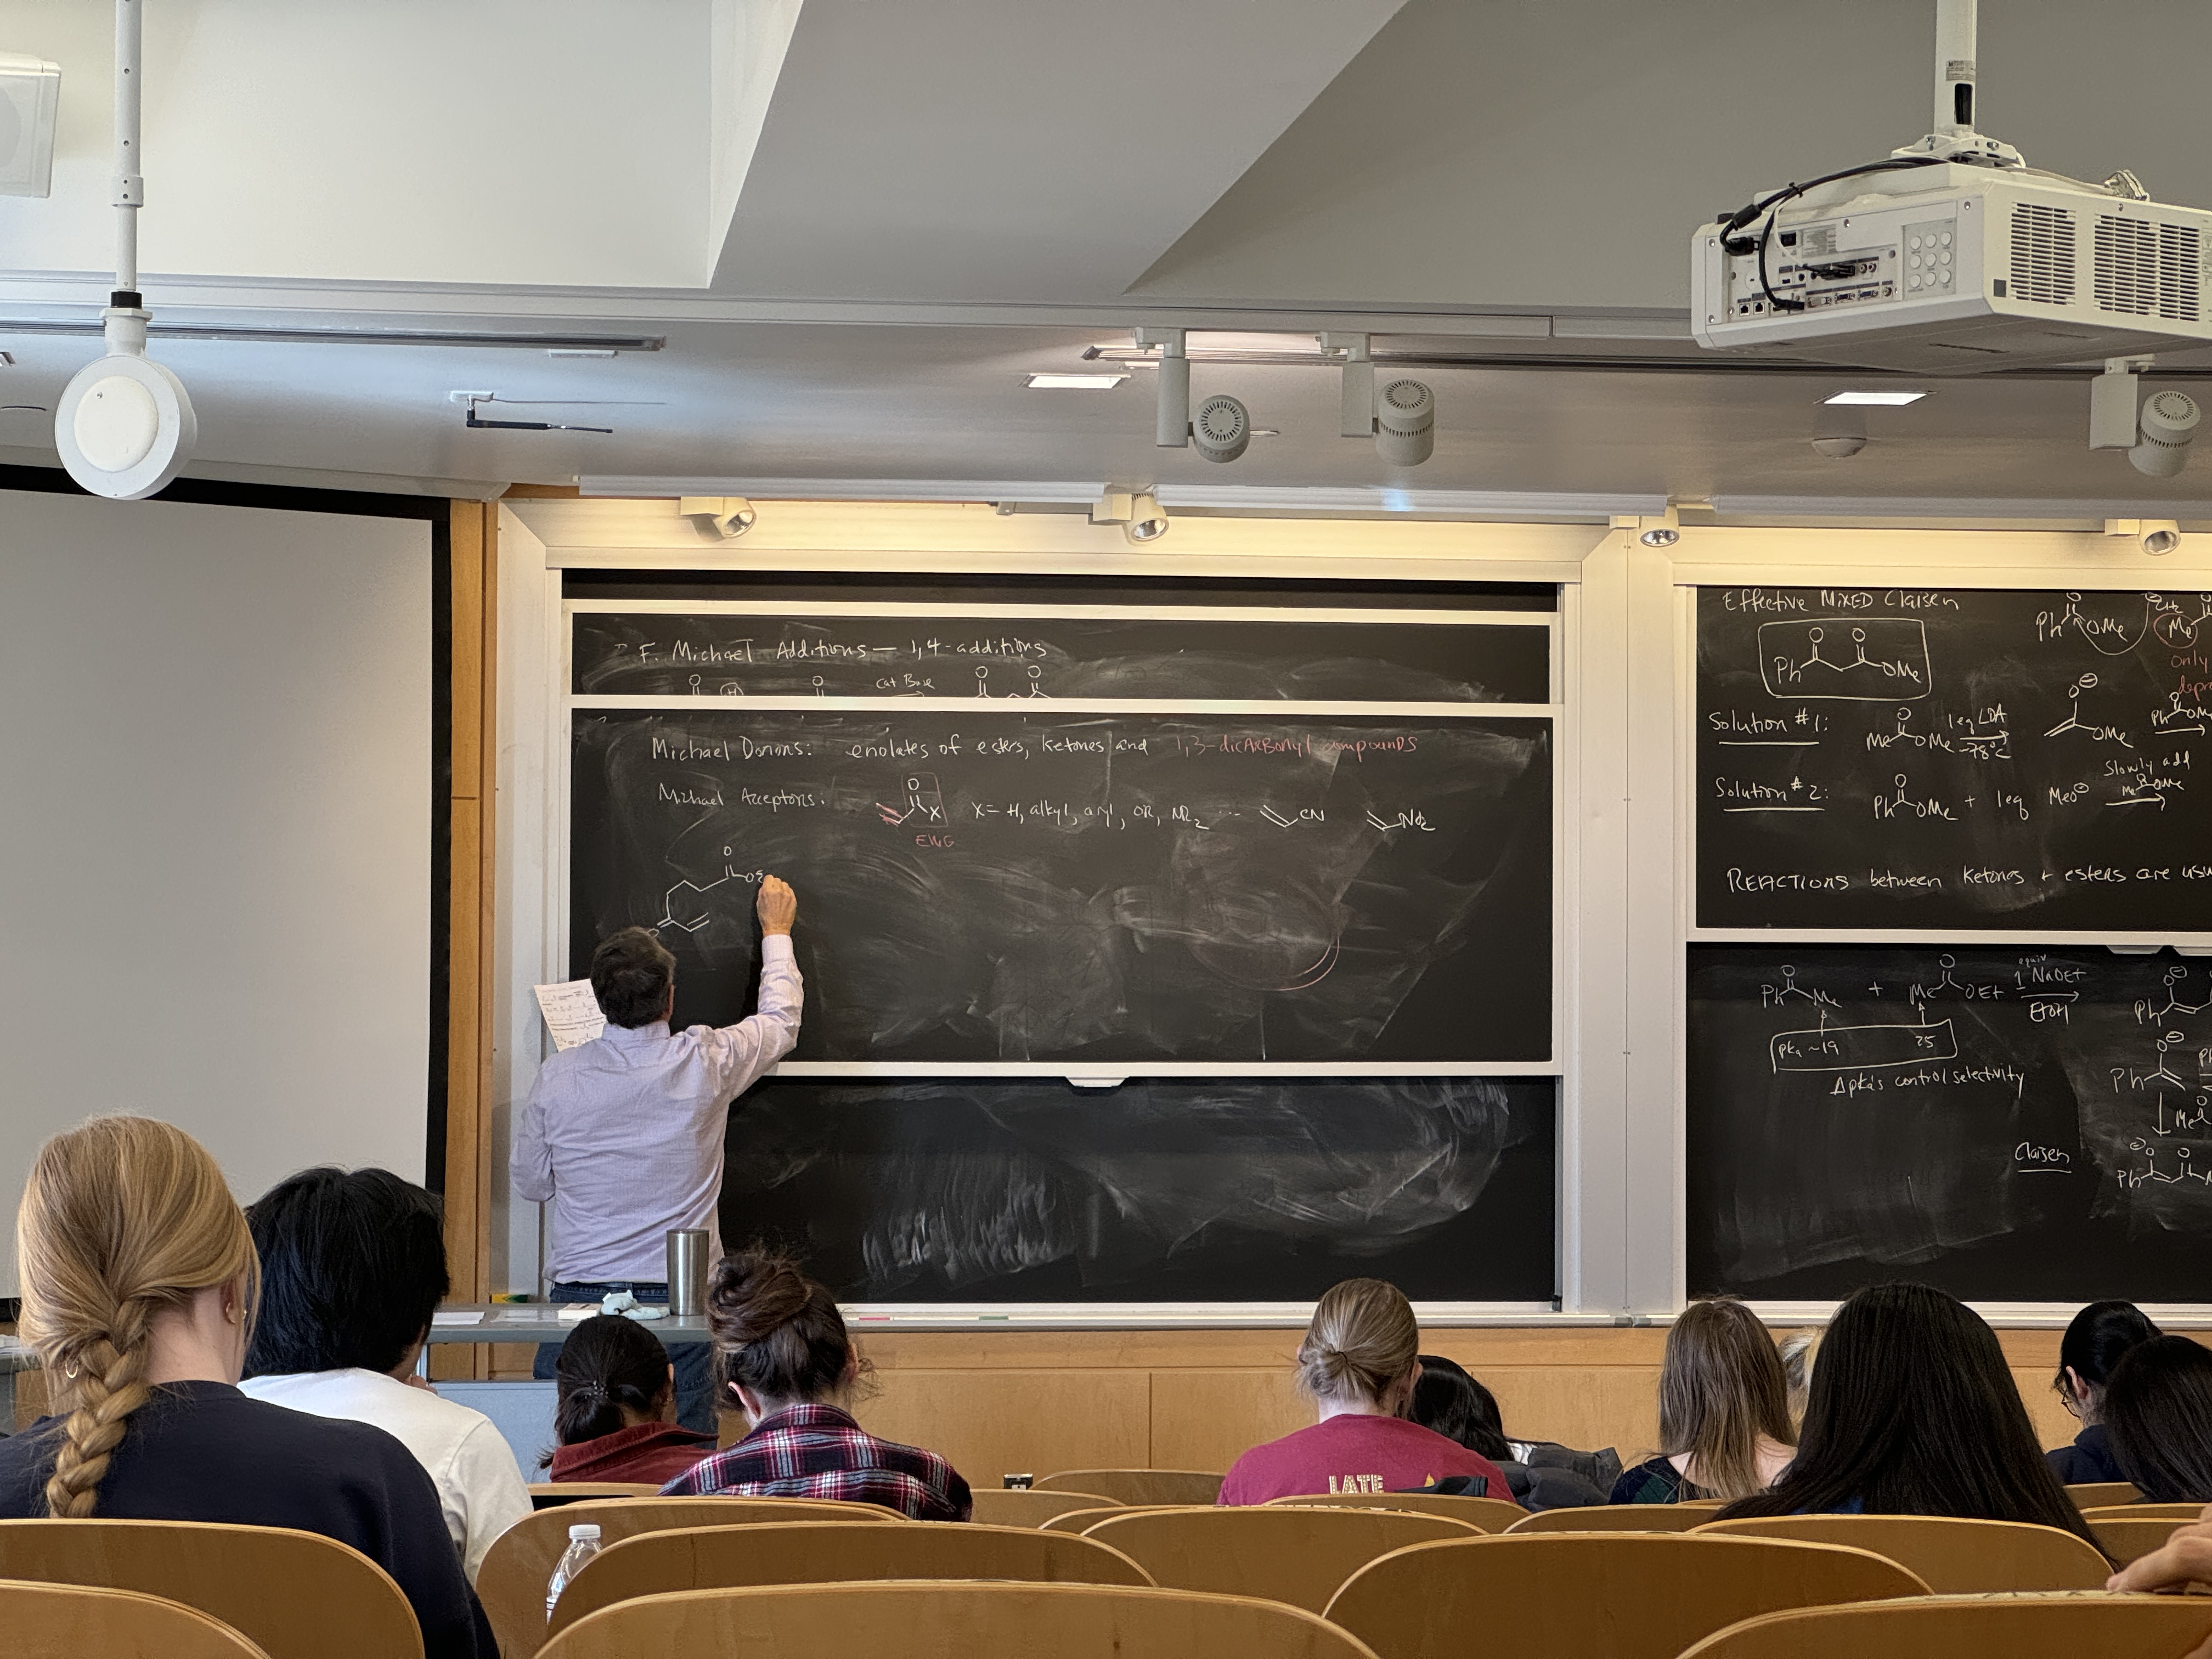 F. Michael Additions — 1,4-additions
O H O Cat Base O O
Michael Donors: enolates of esters, ketones and 1,3-dicarbonyl compounds
Michael Acceptors:
O
X X = H, alkyl, aryl, OR, NR2 ... CN NO2
EWG
O
O
Effective MIXED Claisen
O O
Ph OMe
Ph OMe
Me
only
Solution #1:
O
Me OMe 1eq LDA
-78°C
O⊖
OMe
Ph
Solution #2:
O
Ph OMe + 1eq MeO⊖
Slowly add
Me OMe
REACTIONS between ketones + esters are
O O
Ph Me + Me OEt
equiv
1 NaOEt
EtOH
pKa ~19 25
ΔpKa's control selectivity
O⊖
Ph
O⊖
Ph
Claisen
⊖O O
Ph
LATE